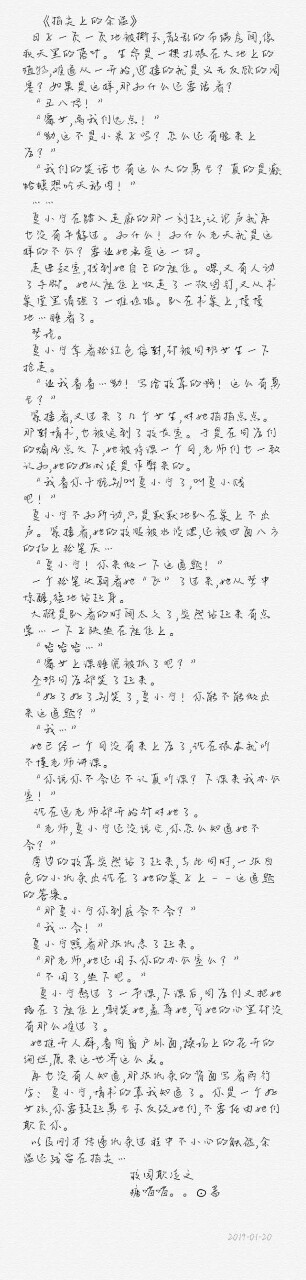 《指尖上的余温》
日子一页一页地被撕去,散乱的布满房间,像
秋天里的落叶。生命是一棵扎根在大地上的
植物,难道从一开始,迎接的就是义无反顾的凋
零?如果是这样,那为什么还要活着?
“丑八怪!”
“魔女,离我们远点!”
“呦,这不是小宋吗?怎么还有脸来上
店?”
“我们的笑话也有这么大的勇气?真的是癞
蛤蟆想吃天鹅肉!”
……
夏小宁在踏入走廊的那一刻起,议论声就再
也没有平静过。为什么!为什么老天就是这
样的不公?要让她来受这一切。
走进教室,找到她自己的座位。嘿,又有人动
了手脚。她从座位上收走了一枚图钉,又从书
桌堂里清理了一堆垃圾。趴在书桌上,慢慢
地…睡着了。
梦境。
夏小宁拿着粉红色信封,却被同班女生一下
抢走。
“让我看看…呦!写给牧草的啊!这么有勇
气?”
紧接着,又过来了几个女生,对她指指点点。
那封情书,也被送到了校长室。于是在同店们
的煽风点火下,她被停课一个月,老师们也一致
认为,她的好成绩是作弊来的。
“我看你干脆别叫夏小宁了,叫夏小贱
吧!”
夏小宁不为所动,只是默默地趴在桌上不出
声。紧接着,她的校服被水浸湿,还被四面八方
的扬上粉笔灰…
“夏小宁!你来做一下这道题!”
一个粉笔头朝着她“飞”了过来,她从梦中
惊醒,猛地站起身。
大概是趴着的时间太久了,突然站起来有点
晕…一下又跌坐在座位上。
“哈哈哈…”
“魔女上课睡觉被抓了吧?”
全班同店都笑了起来。
“好了好了,别笑了,夏小宁!你能不能做出
来这道题?”
“我…”
她已经一个月没有来上店了,现在根本就听
不懂老师讲课。
“你说你不会还不认真听课?下课来我办公
室!”
现在连老师都开始针对她了。
“老师,夏小宁还没说完,你怎么知道她不
会?”
旁边的牧草突然站了起来,与此同时,一张白
色的小纸条出现在了她的桌子上--这道题
的答案。
“那夏小宁你到底会不会?”
“我…会!”
夏小宁照着那张纸念了起来。
“那老师,她还用去你的办公室么?”
“不用了,坐下吧。”
夏小宁熬过了一节课,下课后,同店们又把她
堵在了座位上,嘲笑她,羞辱她,可她的心里却没
有那么难过了。
她推开人群,看向窗户外面,操场上的花开的
绚烂,原来这世界这么美。
再也没有人知道,那张纸条的背面写着两行
字:夏小宁,情书的事我知道了。你是一个好
女孩,你要鼓起勇气去反驳她们,不要任由她们
欺负你。
以及刚才传递纸条过程中不小心的触碰,余
温还残留在指尖…
校园欺凌文
2019·01·20